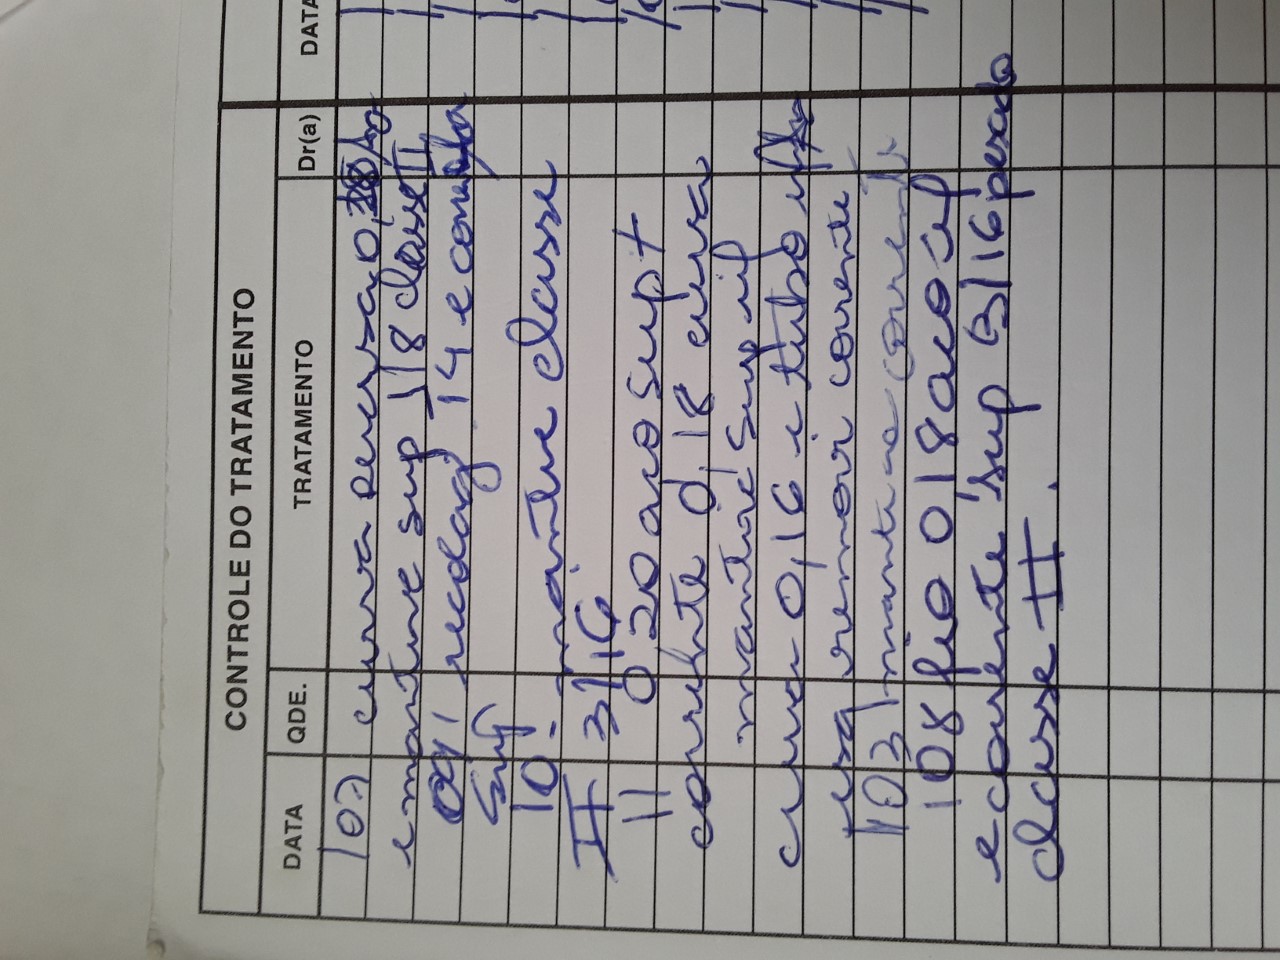 CONTROLE DO TRATAMENTO
DATA QDE. TRATAMENTO Dr(a) DATA
107 curva reversa 0,
e mantive sup 18 classe II
09 recolag 14 e
10 - mantive classe
II 3/16
11 0 20 aco sup +
corrente 0,18 curva
mantive sup inf
curva 0,16 e tubo
remoir corrente
103
108 fio 018 aco inf
e corrente sup 3/16 pesado
classe II.